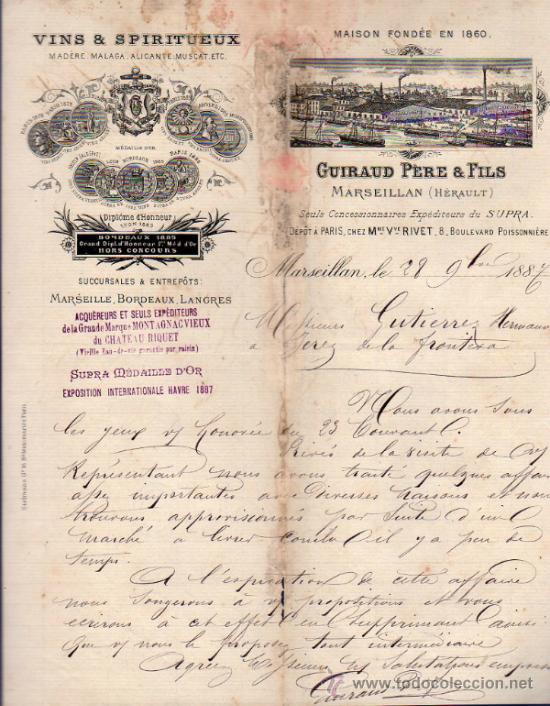 VINS & SPIRITUEUX
MADÈRE, MALAGA, ALICANTE, MUSCAT, ETC.
MAISON FONDÉE EN 1860.
MÉDAILLE D'OR
GUIRAUD PÈRE & FILS
MARSEILLAN (HÉRAULT)
Seuls Concessionnaires Expéditeurs du SUPRA.
DÉPÔT À PARIS, CHEZ MME VVE RIVET, 8, BOULEVARD POISSONNIÈRE
Diplôme d'Honneur
LYON 1883
BORDEAUX 1885
Grand Dipl. d'Honneur 1re Méd. d'Or
HORS CONCOURS
SUCCURSALES & ENTREPÔTS:
MARSEILLE, BORDEAUX, LANGRES
ACQUÉREURS ET SEULS EXPÉDITEURS
de la Grande Marque MONTAGNAC VIEUX
du CHATEAU RIQUET
(Vieille Eau-de-vie garantie pur raisin)
SUPRA MÉDAILLE D'OR
EXPOSITION INTERNATIONALE HAVRE 1887
Marseillan, le 29 9bre 1887
Messieurs Gutierrez Hermanos
a Jerez de la frontera
Nous avons sous
les yeux v/ honorée du 23 Courant.
Privés de la visite de v/
Représentant nous avons traité quelques affaires
assez importantes avec Diverses Maisons et nous
trouvons approvisionnés par suite d'un
marché à livrer conclu il y a peu de
temps.
A l'expiration de cette affaire
nous songerons à v/ propositions et vous
ecrirons à cet effet en supprimant ainsi
que v/ nous le proposez tout intermédiaire
Agréez Messieurs nos salutations empressées
Guiraud
www.todocoleccion.net